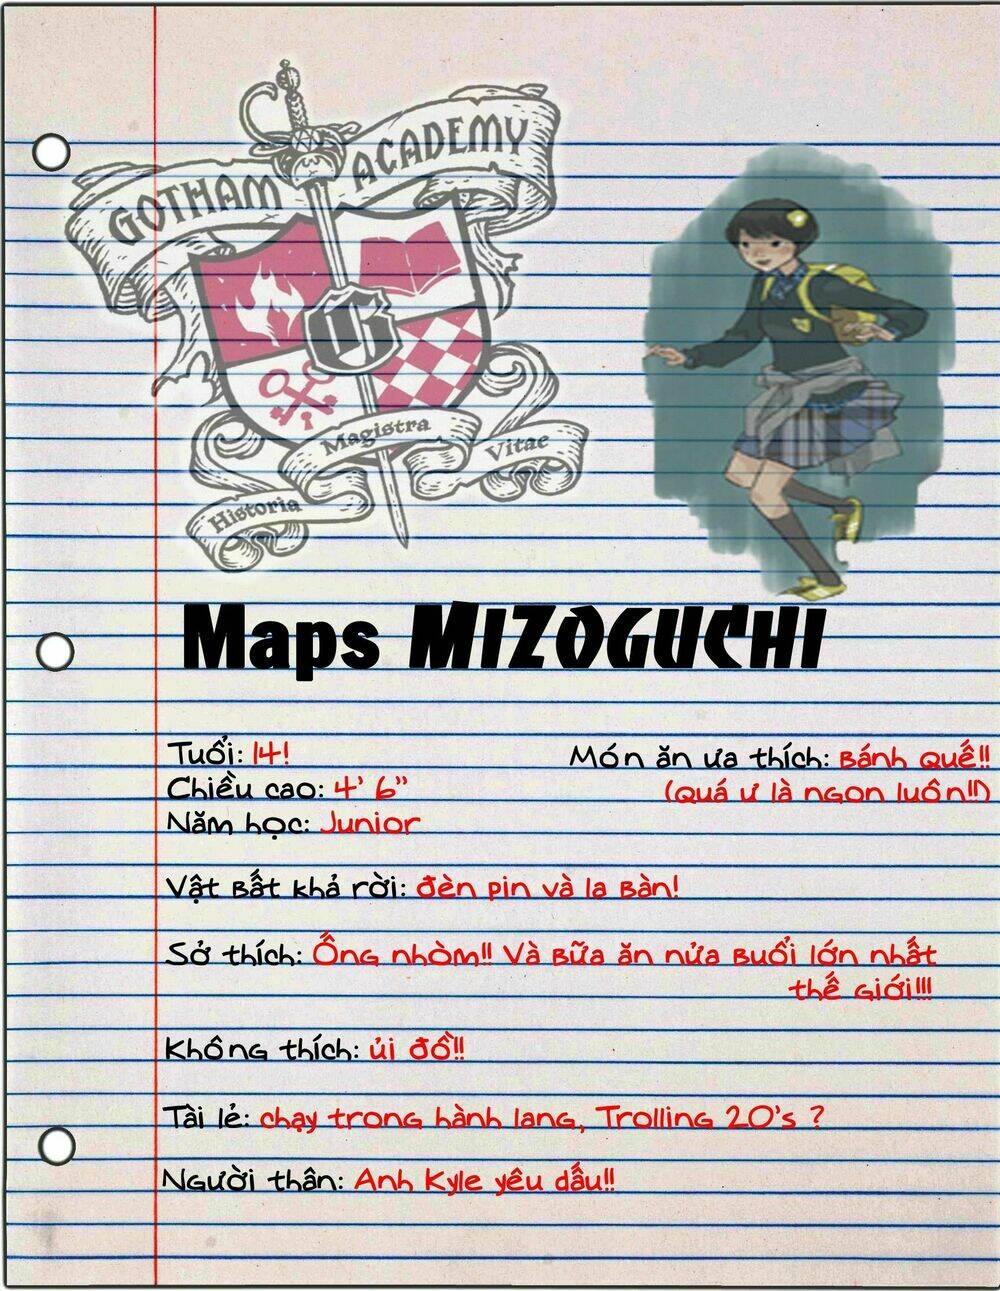 GOTHAM ACADEMY
B
Historia Magistra Vitae
Maps MIZOGUCHI
Tuổi: 14!
Chiều cao: 4' 6"
Năm học: Junior
Món ăn ưa thích: Bánh quế!!
(Quá ư là ngon luôn!!)
Vật bất khả rời: đèn pin và la bàn!
Sở thích: Ống nhòm!! Và bữa ăn nửa buổi lớn nhất
thế giới!!!
Không thích: ủi đồ!!
Tài lẻ: chạy trong hành lang, Trolling 20's ?
Người thân: Anh Kyle yêu dấu!!